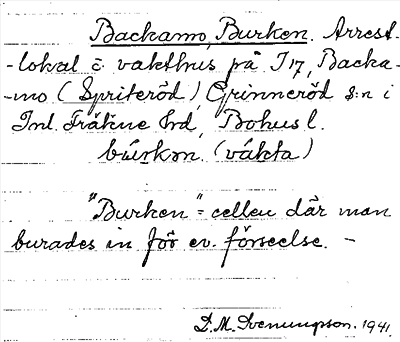 Backamo, Burken. Arrest-
-lokal i vakthus på I 17, Backa-
-mo (Spriteröd), Grinneröd s:n i
Inl. Fräkne hrd, Bohus l.
bú̀rkən. (vákta)
"Burken" = cellen där man
burades in för ev. förseelse. -
D. M. Svenungson. 1941.